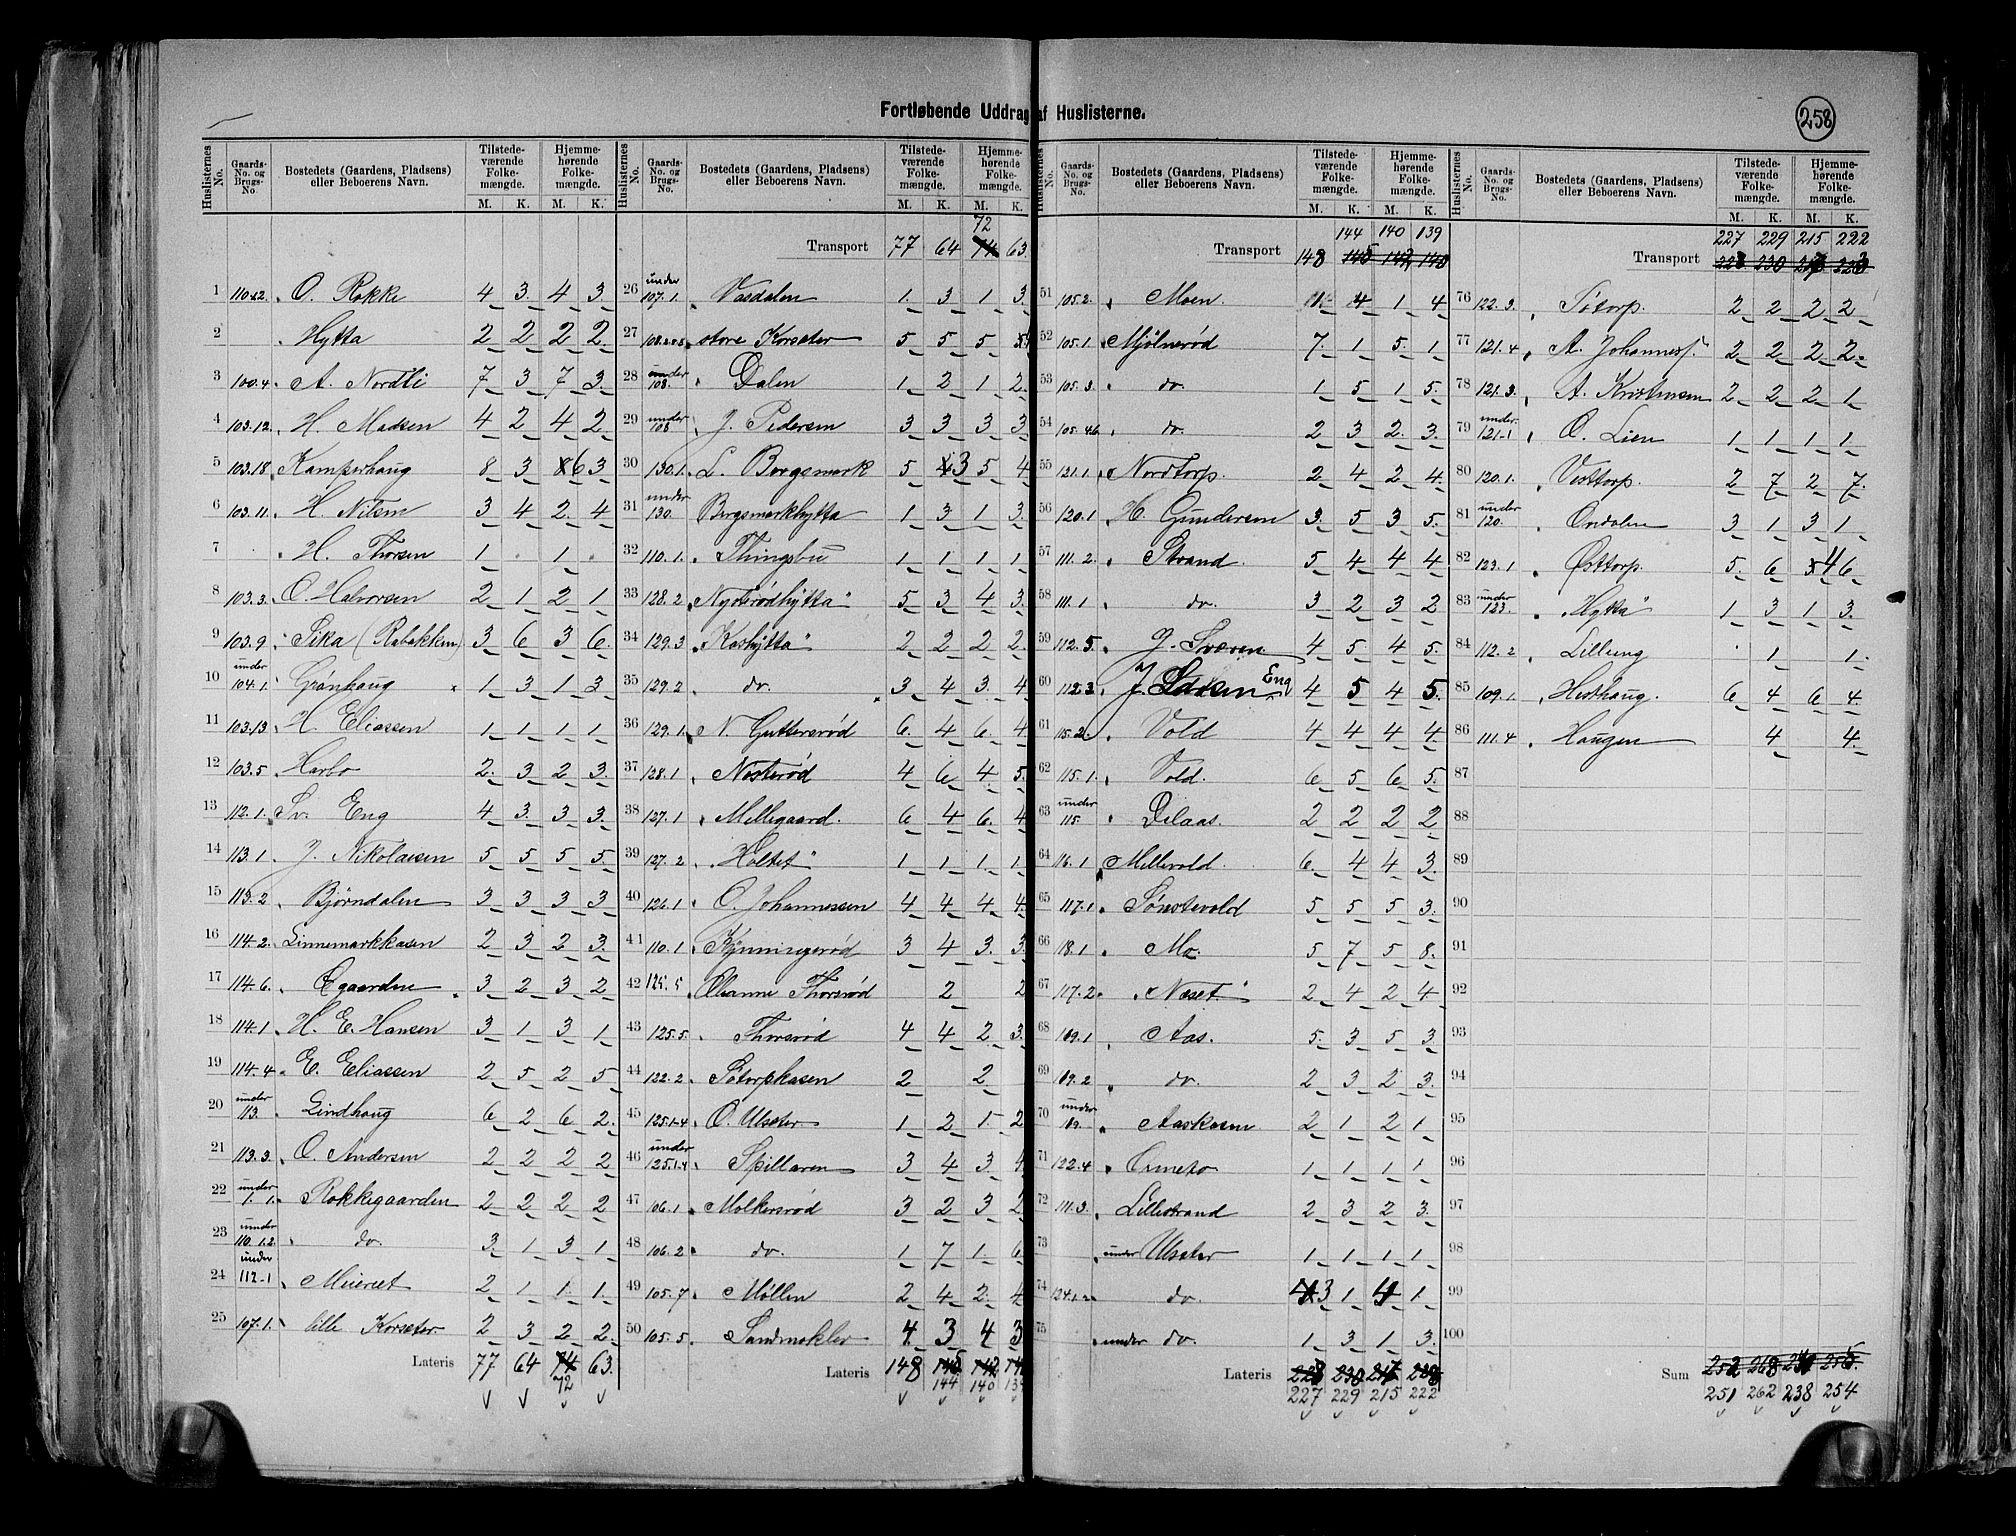 Fortløbende Uddrag af Huslisterne.
258
Huslisternes No. | Gaards-No. og Brugs-No. | Bostedets (Gaardens, Pladsens) eller Beboerens Navn. | Tilstedeværende Folkemængde. M. K. | Hjemmehørende Folkemængde. M. K.
1 110.1.2. O. Rokke 4 3 4 3
2 Hytta 2 2 2 2
3 100.4 A. Nordli 7 3 7 3
4 103.12. H. Madsen 4 2 4 2
5 103.18 Kamperhaug 8 3 6 3
6 103.11. H. Nilsen 3 4 2 4
7 H. Thorsen 1 1
8 103.3. O. Halvorsen 2 1 2 1
9 103.9 Sika (Rabakken) 3 6 3 6
10 under 104.1. Grønhaug 1 3 1 3
11 103.13 H. Eliassen 1 1 1 1
12 103.5 Harbo 2 3 2 3
13 112.1. Sv. Eng 4 3 3 3
14 113.1 J. Nikolaisen 5 5 5 5
15 113.2 Bjørndalen 3 3 3 3
16 114.2. Linnemarkkasen 2 3 2 3
17 114.6. Øgaarden 3 2 3 2
18 114.1 H. E. Hansen 3 1 3 1
19 114.4 E. Eliassen 2 5 2 5
20 under 113. Lindhaug 6 2 6 2
21 113.3 O. Andersen 2 2 2 2
22 under 1.1. Rokkegaarden 2 2 2 2
23 under 110.1.2. do. 3 1 3 1
24 under 112.1 Meieriet 2 1 1 1
25 107.1. lille Korseter 2 3 2 2
Lateris 77 64 74 63
72
Transport 77 64 74 63
72
26 under 107.1. Vasdalen 1 3 1 3
27 store Korseter 5 5 5
28 under 108. Dalen 1 2 1 2
29 under 108 J. Pedersen 3 3 3 3
30 130.1. L. Bergsmark 5 3 5 4
31 under 130. Bergsmarkhytta 1 3 1 3
32 110.1. Thingsbu 1 1 1 1
33 128.2 Nysterødhytta" 5 3 4 3
34 129.3 "Kashytta" 2 2 2 2
35 129.2 do. 3 4 3 4
36 129.1. N. Guttersrød 6 4 6 4
37 128.1 Nesterød 4 6 4 5
38 127.1 Mellegaard. 6 4 6 4
39 127.2 "Holtet" 1 1 1 1
40 126.1 O. Johannessen 4 4 4 4
41 110.1 Kynningsrød 3 4 3 3
42 125.5 Oleanne Thorsrød 2 2
43 125.5. Thorsrød 4 4 2 3
44 122.2 Søtorpkasen 2 2
45 125.1-4 O. Ulseter 1 2 1 2
46 under 125.1.4 Spillaren 3 4 3 4
47 106.1 Molkersrød 3 2 3 2
48 106.2 do. 1 7 1 6
49 105.7 Møllen 2 4 2 4
50 105.5. Sandmokler 4 3 4 3
Lateris 148 145 142
144 140 139
Transport 148 145 142 140
144 140 139
51 105.2. Moen. 4 1 4
52 105.1 Mjølnerød 7 1 5 1
53 105.3. do. 1 5 1 5
54 105.46. do. 2 3 2 3
55 121.1 Nordtorp. 2 4 2 4
56 120.1 H. Gundersen 3 5 3 5
57 111.2. Strand. 5 4 4 4
58 111.1 do. 3 2 3 2
59 112.5. J. Sveen 4 5 4 5
60 112.3 J. Larsen Eng 4 5 4 5
61 115.2. Vold 4 4 4 4
62 115.1. Vold. 6 5 6 5
63 under 115. Delaas. 2 2 2 2
64 116.1 Mellevold. 6 4 4 3
65 117.1 Sønstevold 5 5 5 3
66 18.1 Mo. 5 7 5 8
67 117.2. "Næset" 2 4 2 4
68 109.1 Aas. 5 3 5 3
69 109.2 do. 2 3 2 3
70 under 109. Aaskasen 2 1 2 1
71 122.4 1 1 1 1
72 111.3. Lillestrand 2 3 2 3
73 under Ulseter 1 1 1 1
74 124.1.2. do. 3 1 1
75 under do. 1 3 1 3
Lateris 228 230 217 223
227 229 215 222
Transport 228 230 217 223
227 229 215 222
76 122.3. Søtorp. 2 2 2 2
77 121.4 A. Johanness. 2 2 2 2
78 121.3. A. Kristiansen 2 2 2 1
79 under 121.1 O. Lien 1 1 1 1
80 120.1. Vesttorp. 2 7 2 7
81 under 120. Ondalen 3 1 3 1
82 123.1 Østtorp. 5 6 4 6
83 under 123. "Hytta" 1 3 1 3
84 112.2 Lilleng 1 1
85 109.1. Hedshaug. 6 4 6 4
86 111.4 Haugen 4 4
87
88
89
90
91
92
93
94
95
96
97
98
99
100
Sum 252 263 255
251 262 238 254